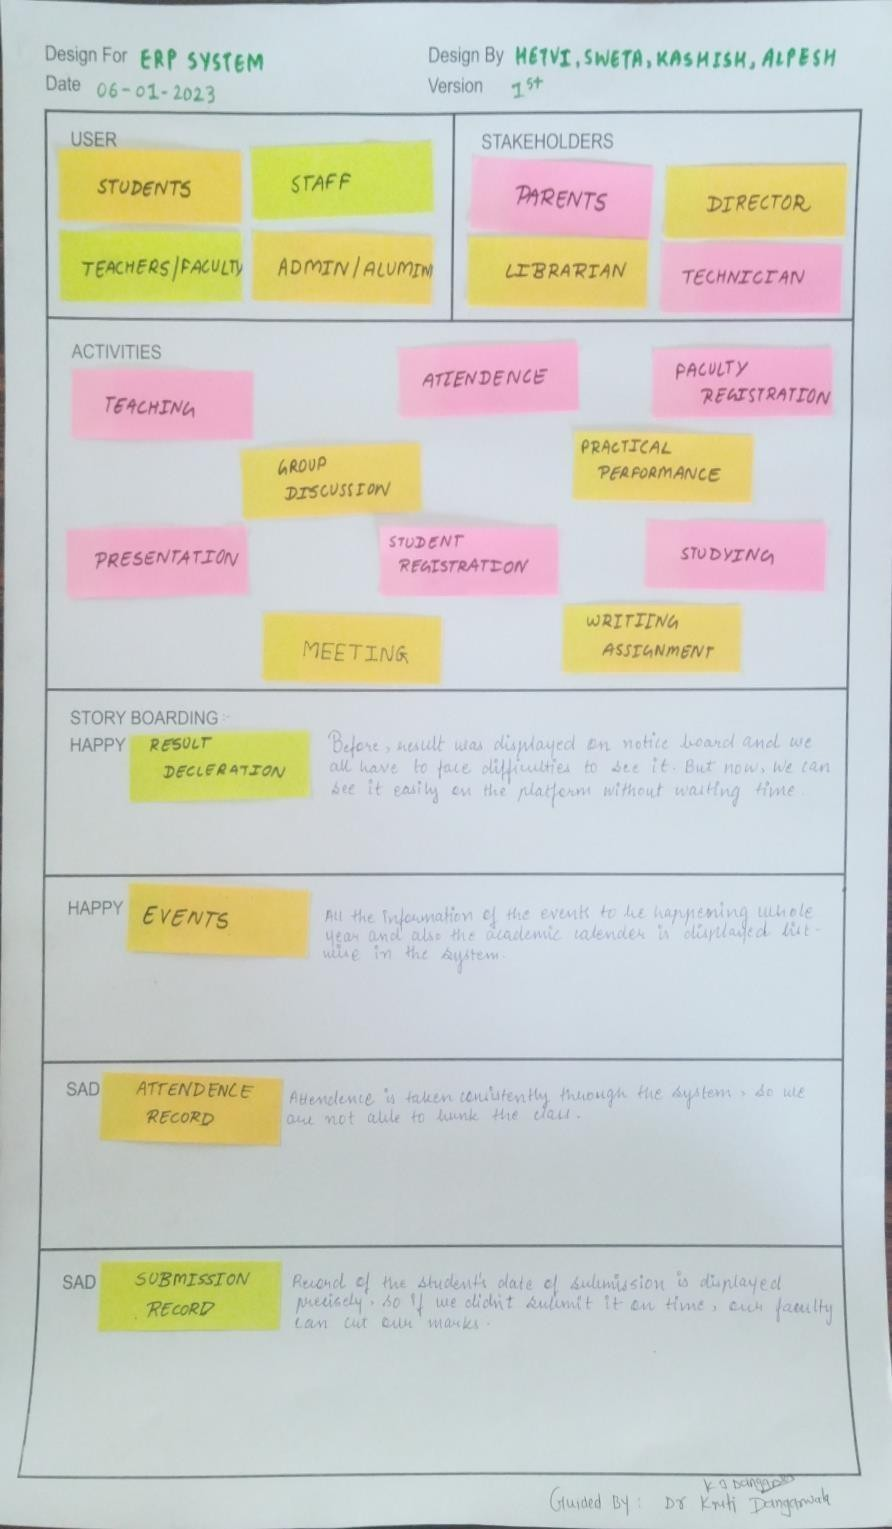 Design For ERP SYSTEM
Design By HETVI, SWETA, KASHISH, ALPESH
Date 06-01-2023
Version 1st
USER
STUDENTS
STAFF
TEACHERS/FACULTY
ADMIN/ALUMIN
STAKEHOLDERS
PARENTS
DIRECTOR
LIBRARIAN
TECHNICIAN
ACTIVITIES
TEACHING
ATTENDENCE
FACULTY
REGISTRATION
GROUP
DISCUSSION
PRACTICAL
PERFORMANCE
PRESENTATION
STUDENT
REGISTRATION
STUDYING
MEETING
WRITIING
ASSIGNMENT
STORY BOARDING :-
HAPPY RESULT
DECLERATION
Before, result was displayed on notice board and we
all have to face difficulties to see it. But now, we can
see it easily on the platform without waiting time.
HAPPY EVENTS
All the Information of the events to be happening whole
year and also the academic calender is displayed list-
wise in the system.
SAD ATTENDENCE
RECORD
Attendence is taken consistently through the system, so we
are not able to bunk the class.
SAD SUBMISSION
RECORD
Record of the student's date of submission is displayed
precisely. so if we didn't submit it on time, our faculty
can cut our marks.
Guided By : Dr Kruti Dangarwala